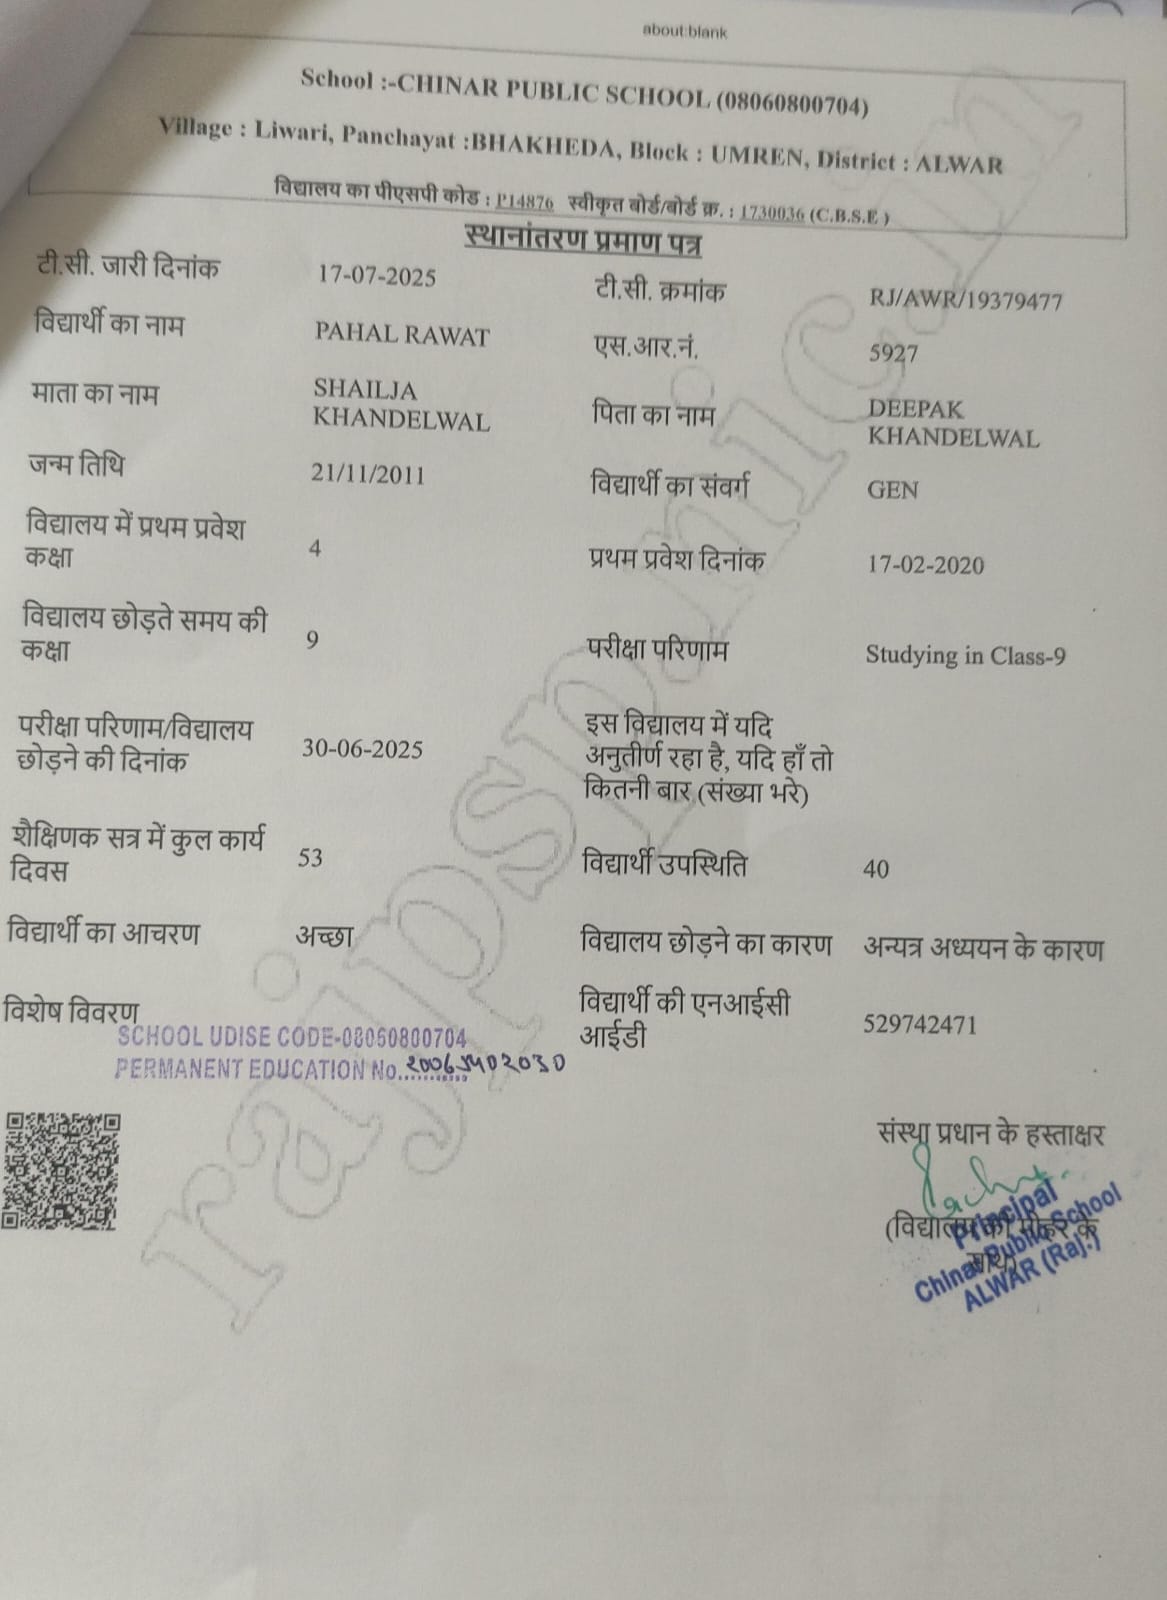 about:blank
School :-CHINAR PUBLIC SCHOOL (08060800704)
Village : Liwari, Panchayat :BHAKHEDA, Block : UMREN, District : ALWAR
विद्यालय का पीएसपी कोड : P14876 स्वीकृत बोर्ड/बोर्ड क्र. : 1730036 (C.B.S.E )
स्थानांतरण प्रमाण पत्र
टी.सी. जारी दिनांक 17-07-2025 टी.सी. क्रमांक RJ/AWR/19379477
विद्यार्थी का नाम PAHAL RAWAT एस.आर.नं. 5927
माता का नाम SHAILJA
KHANDELWAL पिता का नाम DEEPAK
KHANDELWAL
जन्म तिथि 21/11/2011 विद्यार्थी का संवर्ग GEN
विद्यालय में प्रथम प्रवेश
कक्षा 4 प्रथम प्रवेश दिनांक 17-02-2020
विद्यालय छोड़ते समय की
कक्षा 9 परीक्षा परिणाम Studying in Class-9
परीक्षा परिणाम/विद्यालय
छोड़ने की दिनांक 30-06-2025
इस विद्यालय में यदि
अनुतीर्ण रहा है, यदि हाँ तो
कितनी बार (संख्या भरे)
शैक्षिणक सत्र में कुल कार्य
दिवस 53 विद्यार्थी उपस्थिति 40
विद्यार्थी का आचरण अच्छा विद्यालय छोड़ने का कारण अन्यत्र अध्ययन के कारण
विशेष विवरण
विद्यार्थी की एनआईसी
आईडी 529742471
SCHOOL UDISE CODE-08060800704
PERMANENT EDUCATION No. 20065402030
संस्था प्रधान के हस्ताक्षर
(विद्यालय की मोहर के
साथ)
Principal
Chinar Public School
ALWAR (Raj.)
rajpsp.nic.in